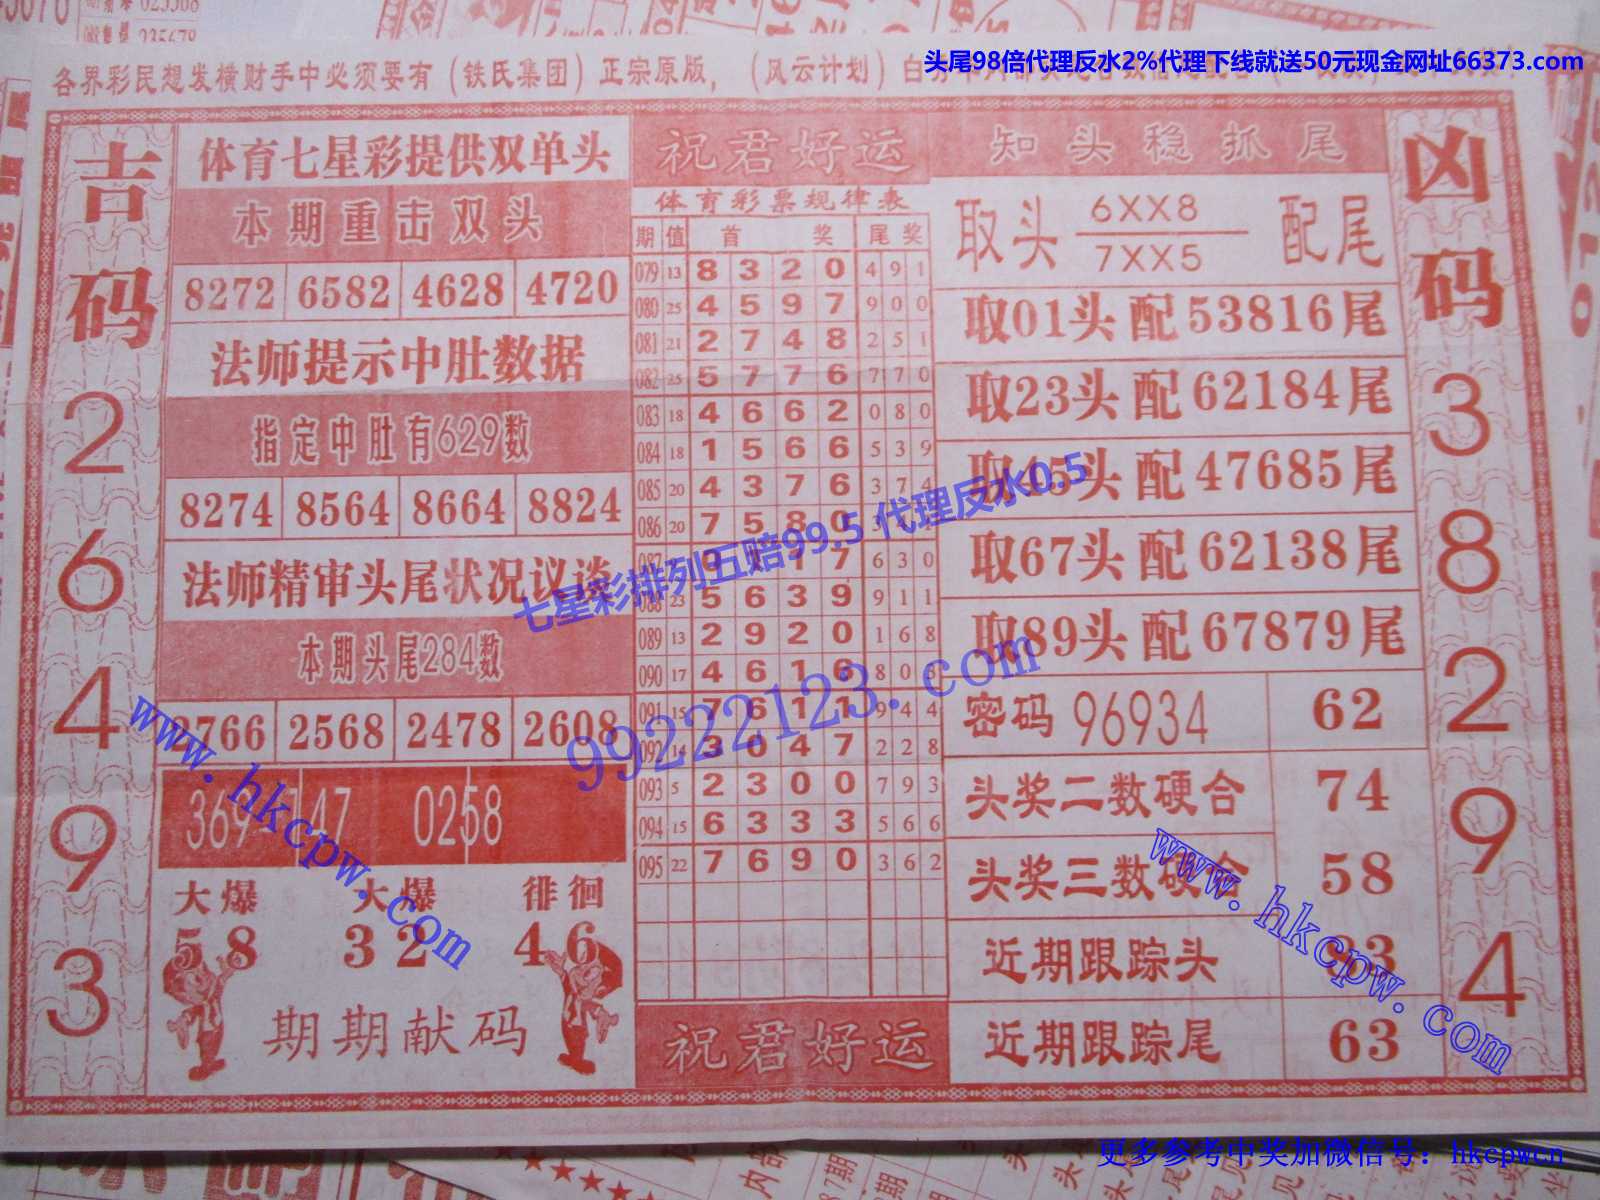 025568
235678
头尾98倍代理反水2%代理下线就送50元现金网址66373.com
各界彩民想发横财手中必须要有（铁氏集团）正宗原版，（风云计划）白
吉码
2
6
4
9
3
体育七星彩提供双单头
本期重击双头
8272 6582 4628 4720
法师提示中肚数据
指定中肚有629数
8274 8564 8664 8824
法师精审头尾状况议谈
本期头尾284数
2766 2568 2478 2608
369 147 0258
大爆 大爆 徘徊
58 32 46
期期献码
祝君好运
体育彩票规律表
期 值 首 奖 尾 奖
079 13 8 3 2 0 4 9 1
080 25 4 5 9 7 9 0 0
081 21 2 7 4 8 2 5 1
082 25 5 7 7 6 7 7 0
083 18 4 6 6 2 0 8 0
084 18 1 5 6 6 5 3 9
085 20 4 3 7 6 3 7 4
086 20 7 5 8 0 3
087 1 7 6 3 0
088 23 5 6 3 9 9 1 1
089 13 2 9 2 0 1 6 8
090 17 4 6 1 6 8 0 3
091 15 7 6 1 1 9 4 4
092 14 3 0 4 7 2 2 8
093 5 2 3 0 0 7 9 3
094 15 6 3 3 3 5 6 6
095 22 7 6 9 0 3 6 2
祝君好运
知头稳抓尾
取头 6XX8 配尾
7XX5
取01头 配 53816尾
取23头 配 62184尾
取45头 配 47685尾
取67头 配 62138尾
取89头 配 67879尾
密码 96934 62
头奖二数硬合 74
头奖三数硬合 58
近期跟踪头 83
近期跟踪尾 63
凶码
3
8
2
9
4
七星彩排列五赔99.5 代理反水0.5
99222123.com
www.hkcpw.com
www.hkcpw.com
更多参考中奖加微信号：hkcpwcn